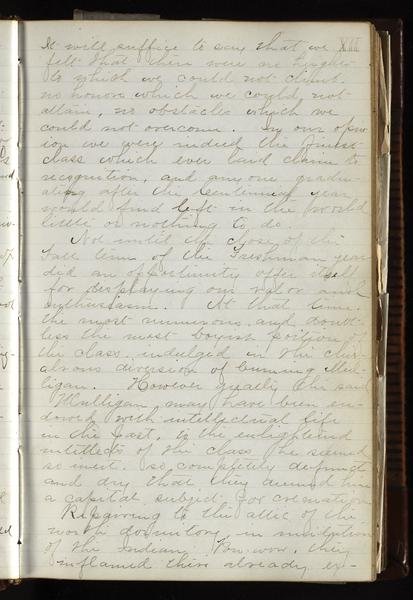 XIII
It will suffice to say that we
felt that there were no heights
to which we could not climb
no honors which we could not
attain, no obstacles which we
could not overcome. In our opin
ion we were indeed the finest
class which ever laid claim to
recognition, and any one gradu-
ating after the Centennial year
would find left in the world
little or nothing to do.
Not until the close of the
fall term of the Freshman year
did an opportunity offer itself
for displaying our valor and
enthusiasm. At that time
the most numerous and doubt
less the most boyish portion of
the class, indulged in the chiv-
alrous diversion of burning Mul-
ligan. However greatly the said
Mulligan may have been en-
dowed with intellectual life
in the past, to the enlightened
intellects of the class he seemed
so inert, so completely defunct
and dry that they deemed him
a capital subject for cremation
Repairing to the attic of the
north dormitory, in imitation
of the Indian, they
inflamed their already ex-